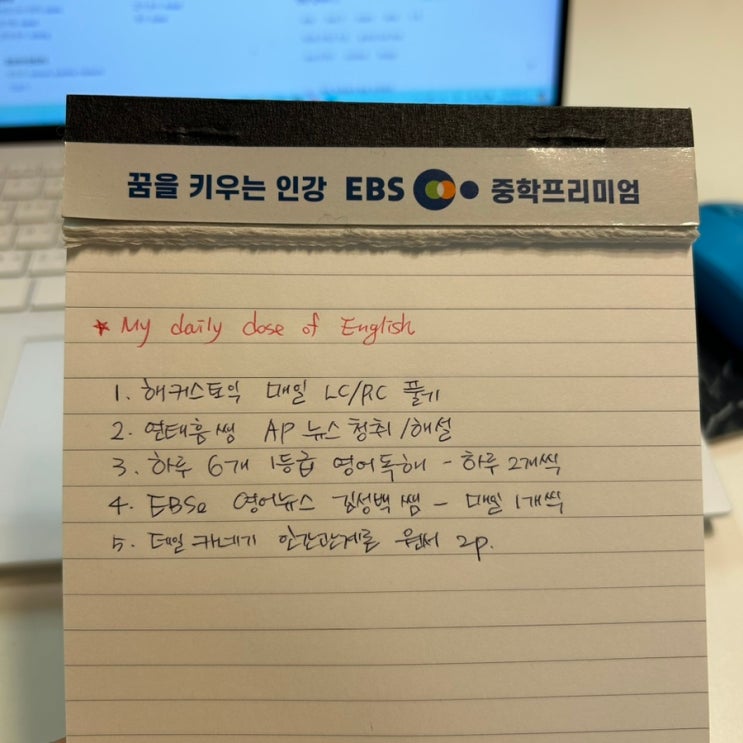 꿈을 키우는 인강 EBS 중학프리미엄
* My daily dose of English
1. 해커스토익 매일 LC/RC 풀기
2. 연태흠쌤 AP 뉴스 청취/해설
3. 하루 6개 1등급 영어독해 - 하루 2개씩
4. EBSe 영어뉴스 김성백쌤 - 매일 1개씩
5. 데일 카네기 인간관계론 원서 2p.